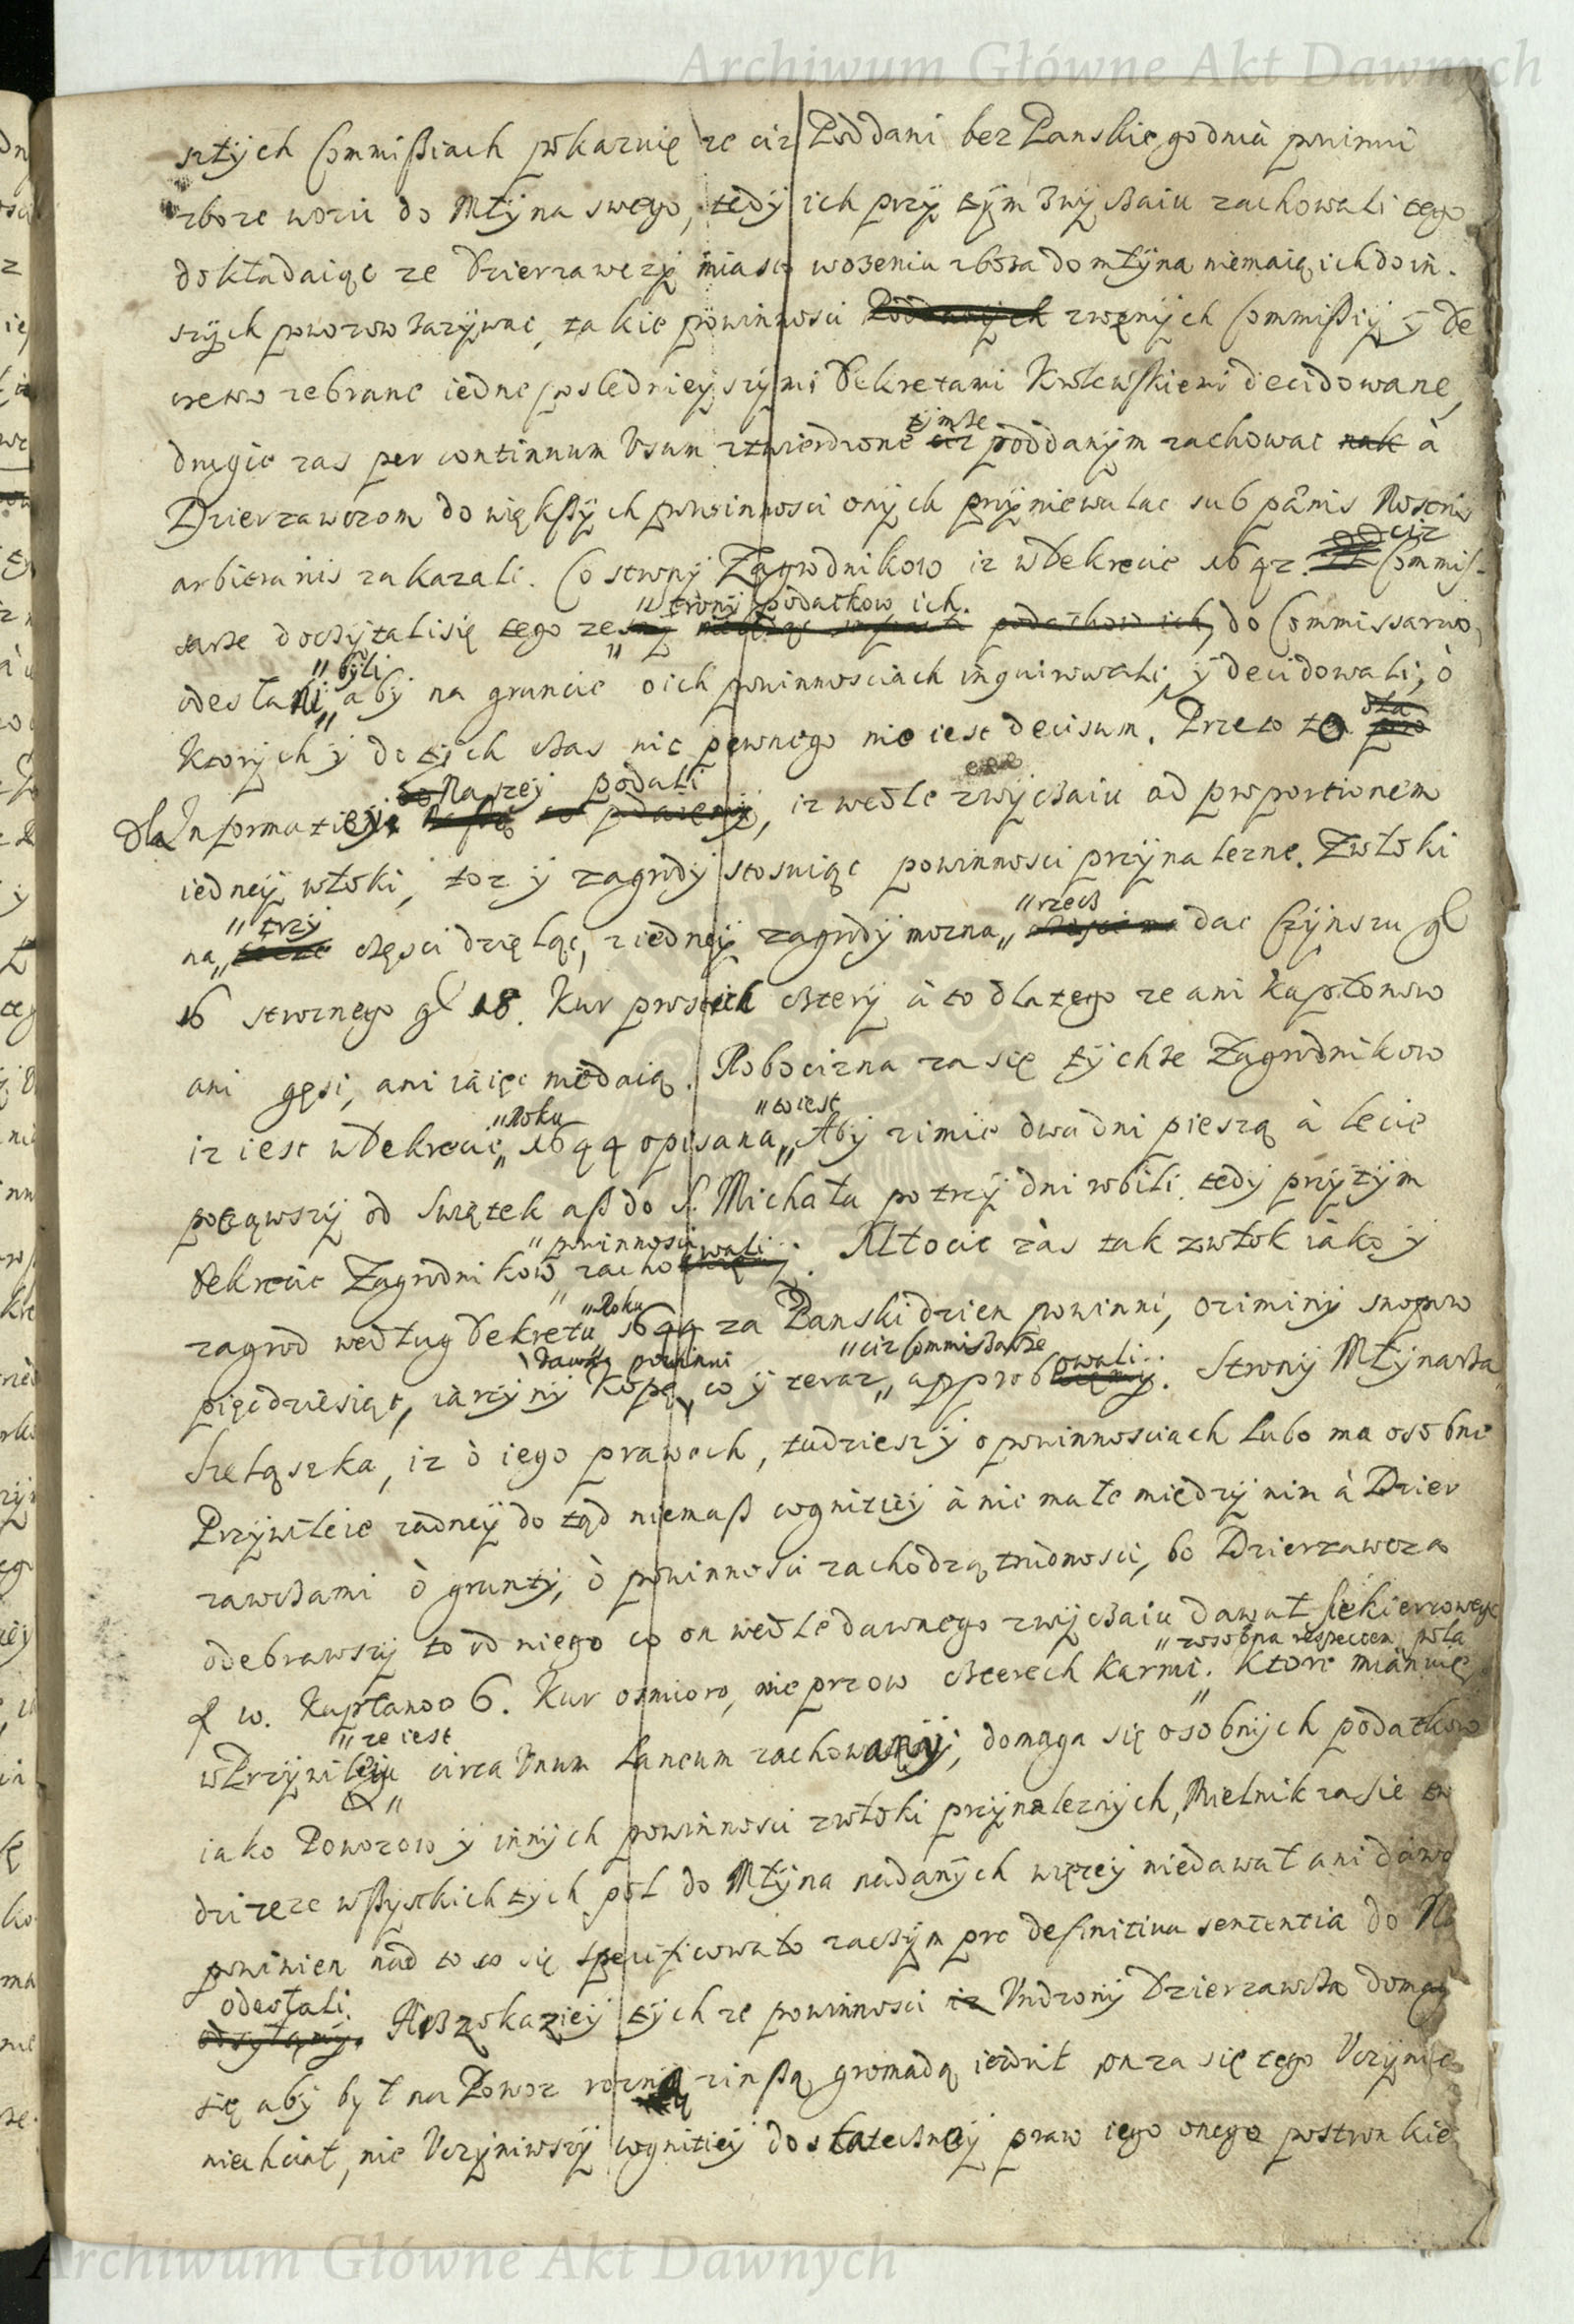 Archiwum Główne Akt Dawnych
sztych Commissiach pokazuię ze ciz Poddani bez Panskiego dnia powinni
zboze wozic do Młyna swego, tedy ich przy tym zwyczaiu zachowali tego
dokładaiąc ze Dzierzawczy miasto wozenia zboza do młyna niemaią ich do in-
szych powozow zazywac, takie powinnosci Poddanych zroznych Commissiy y De
cretow zebrane iedne posledniey szymi Dekretami Krolewskiemi decidowane,
drugie zas per continuum Usum ztwierdzone tymze ciz poddanym zachowac nak à
Dzierzawcom do większych powinnosci onych przyniewalac sub pænis Nostris
arbitrariis zakazali. Co strony Zagrodnikow iz w Dekrecie 1642. ciz Commis-
sarze doczytalisię tego ze
"strony podatkow ich.
podatkow ich, do Commissarzow,
odesłani "byli aby na gruncie o ich powinnosciach inquirowali, y decidowali, ò
Ktorych y do tych czas nic pewnego nie iest decisum. Przeto to dla
Naszey podali
dla Informatiey, iz wedle zwyczaiu ad proportionem
iedney włoki, toz y zagrody stosuiąc powinnosci przynalezne. Zwłoki
na "trzy częsci dzieląc, ziedney zagrody mozna "rzecz dac Czynszu gł
16 stroznego gł 18. Kur prostych cztery à to dlatego ze ani kapłonow
ani gęsi, ani iaiec niedaią. Robocizna zasię tychze Zagrodnikow
iz iest w Dekrecie "Roku 1644 opisana "to iest Aby zimie dwa dni pieszą à lecie
począwszy od Swiątek asz do S. Michała po trzy dni robili tedy przytym
Dekrecie Zagrodnikow "powinnosci zachowali. Młocic zàs tak zwłok iàko y
zagrod według Dekretu "Roku 1644 za Panski dzien powinni, oziminy snopow
pięcdziesiąt, iarzyny Kopę dawną powinni, co y teraz "ciz Commissarze approbowali. Strony Młynarza
Szelązka, iz ò iego prawach, tudziesz y o powinnosciach Lubo ma osobne
Przywileie zadney do tąd niemasz cognitiey à nie małe między nim à Dzier
zawczami ò grunty, ò powinnosci zachodzą trudnosci, bo Dzierzawcza
odebrawszy to od niego co on wedle dawnego zwyczaiu dawał siekierowego
w. Kapłanow 6. Kur osmioro, wieprzow czterech Karmi. "zosobna respectem pola Ktore mianuię
w Przywileiu "ze iest circa Unum Laneum zachowany, domaga się osobnych podatkow
iako Powozow y innych powinnosci zwłoki przynaleznych, Mielnik zasie tw
dzi zeze wszystkich tych pol do Młyna nadanych więcey niedawał ani dàwa
powinien nàd to co się specificowało zaczym pro definitiva sententia do
odesłali odsyłamy. Asz zokaziey tych ze powinnosci iz Urodzony Dzierzawcza domag
się aby był na Powoz zinszą gromadą iezdził on zasię tego Uczynic
niechciał, nie Uczyniwszy cognitiey dostateczney praw iego onego postronkie
Archiwum Główne Akt Dawnych